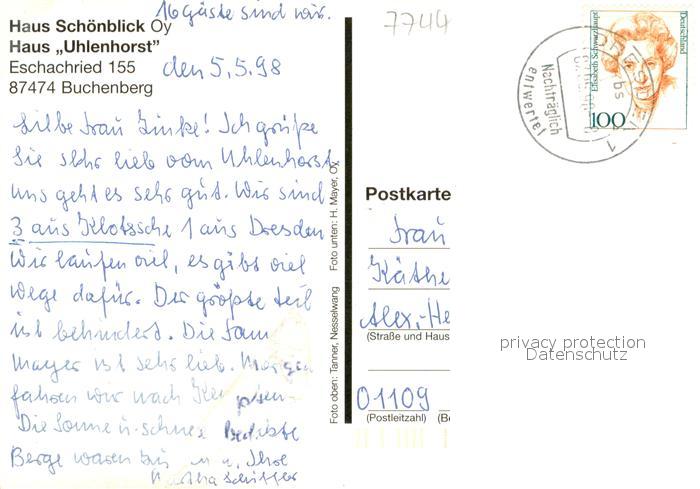 16 Gäste sind wir.
Haus Schönblick Oy
Haus „Uhlenhorst"
Eschachried 155
87474 Buchenberg
den 5.5.98
7744
Liebe Frau Zinke! Ich grüße
Sie sehr lieb vom Uhlenhorst
uns geht es sehr gut. Wir sind
3 aus Klotzsche 1 aus Dresden
Wir laufen viel, es gibt viel
Wege dafür. Der größte teil
ist behindert. Die Fam
mayer ist sehr lieb. Morgen
fahren wir nach Kempten
Die Sonne u. schnee Bedekte
Berge waren Ihre
Martha Schiffer
Foto oben: Tanner, Nesselwang Foto unten: H. Mayer, Oy
Deutschland
Elisabeth Schwarzhaupt
100
DRESDEN
Nachträglich
entwertet
1
Postkarte
Frau
Käthe
Alex.-He
(Straße und Haus
01109
(Postleitzahl) (Be
privacy protection
Datenschutz